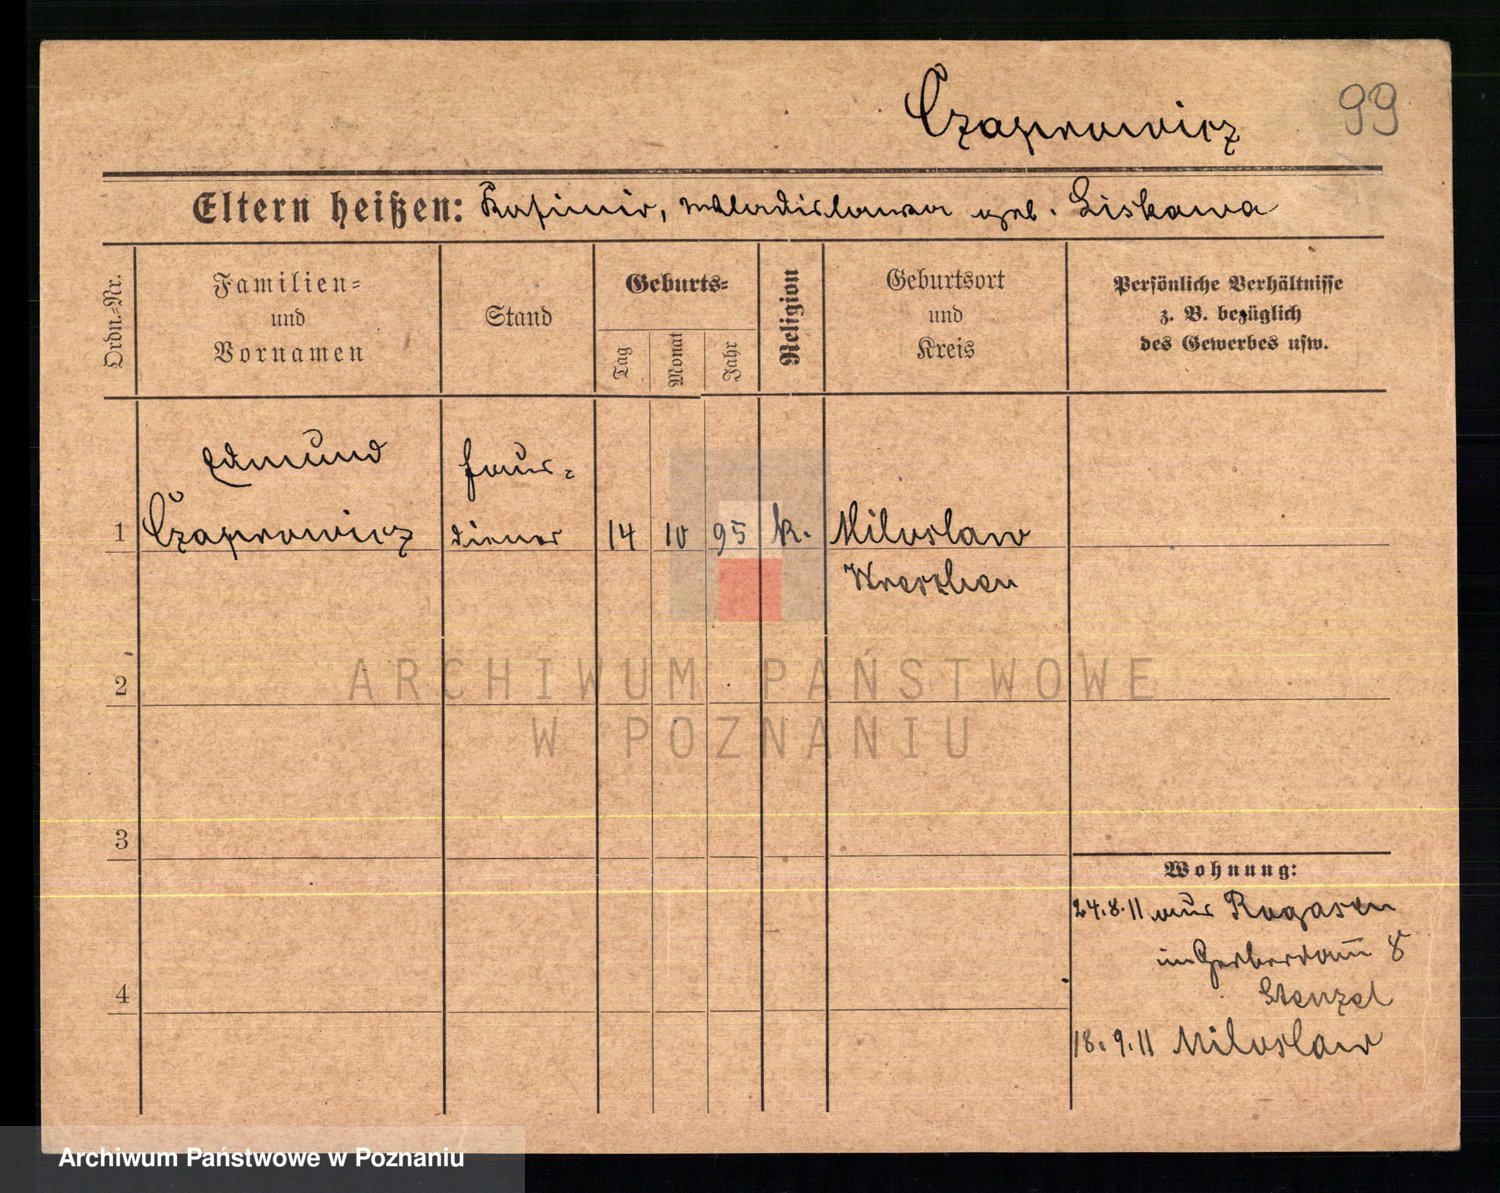 Czaprowicz 99
Eltern heißen: Kasimir, Wladislawa geb. Liskawa
Ordn.-Nr.
Familien-
und
Vornamen
Stand
Geburts-
Tag
Monat
Jahr
Religion
Geburtsort
und
Kreis
Persönliche Verhältnisse
z. B. bezüglich
des Gewerbes usw.
Edmund
Czaprowicz
1
diener
14 10 95 k.
Miloslaw
Wreschen
2
3
4
Wohnung:
24.8.11 aus Rogasen
Gerberdamm 8
Stenzel
18.9.11 Miloslaw
ARCHIWUM PAŃSTWOWE
W POZNANIU
Archiwum Państwowe w Poznaniu